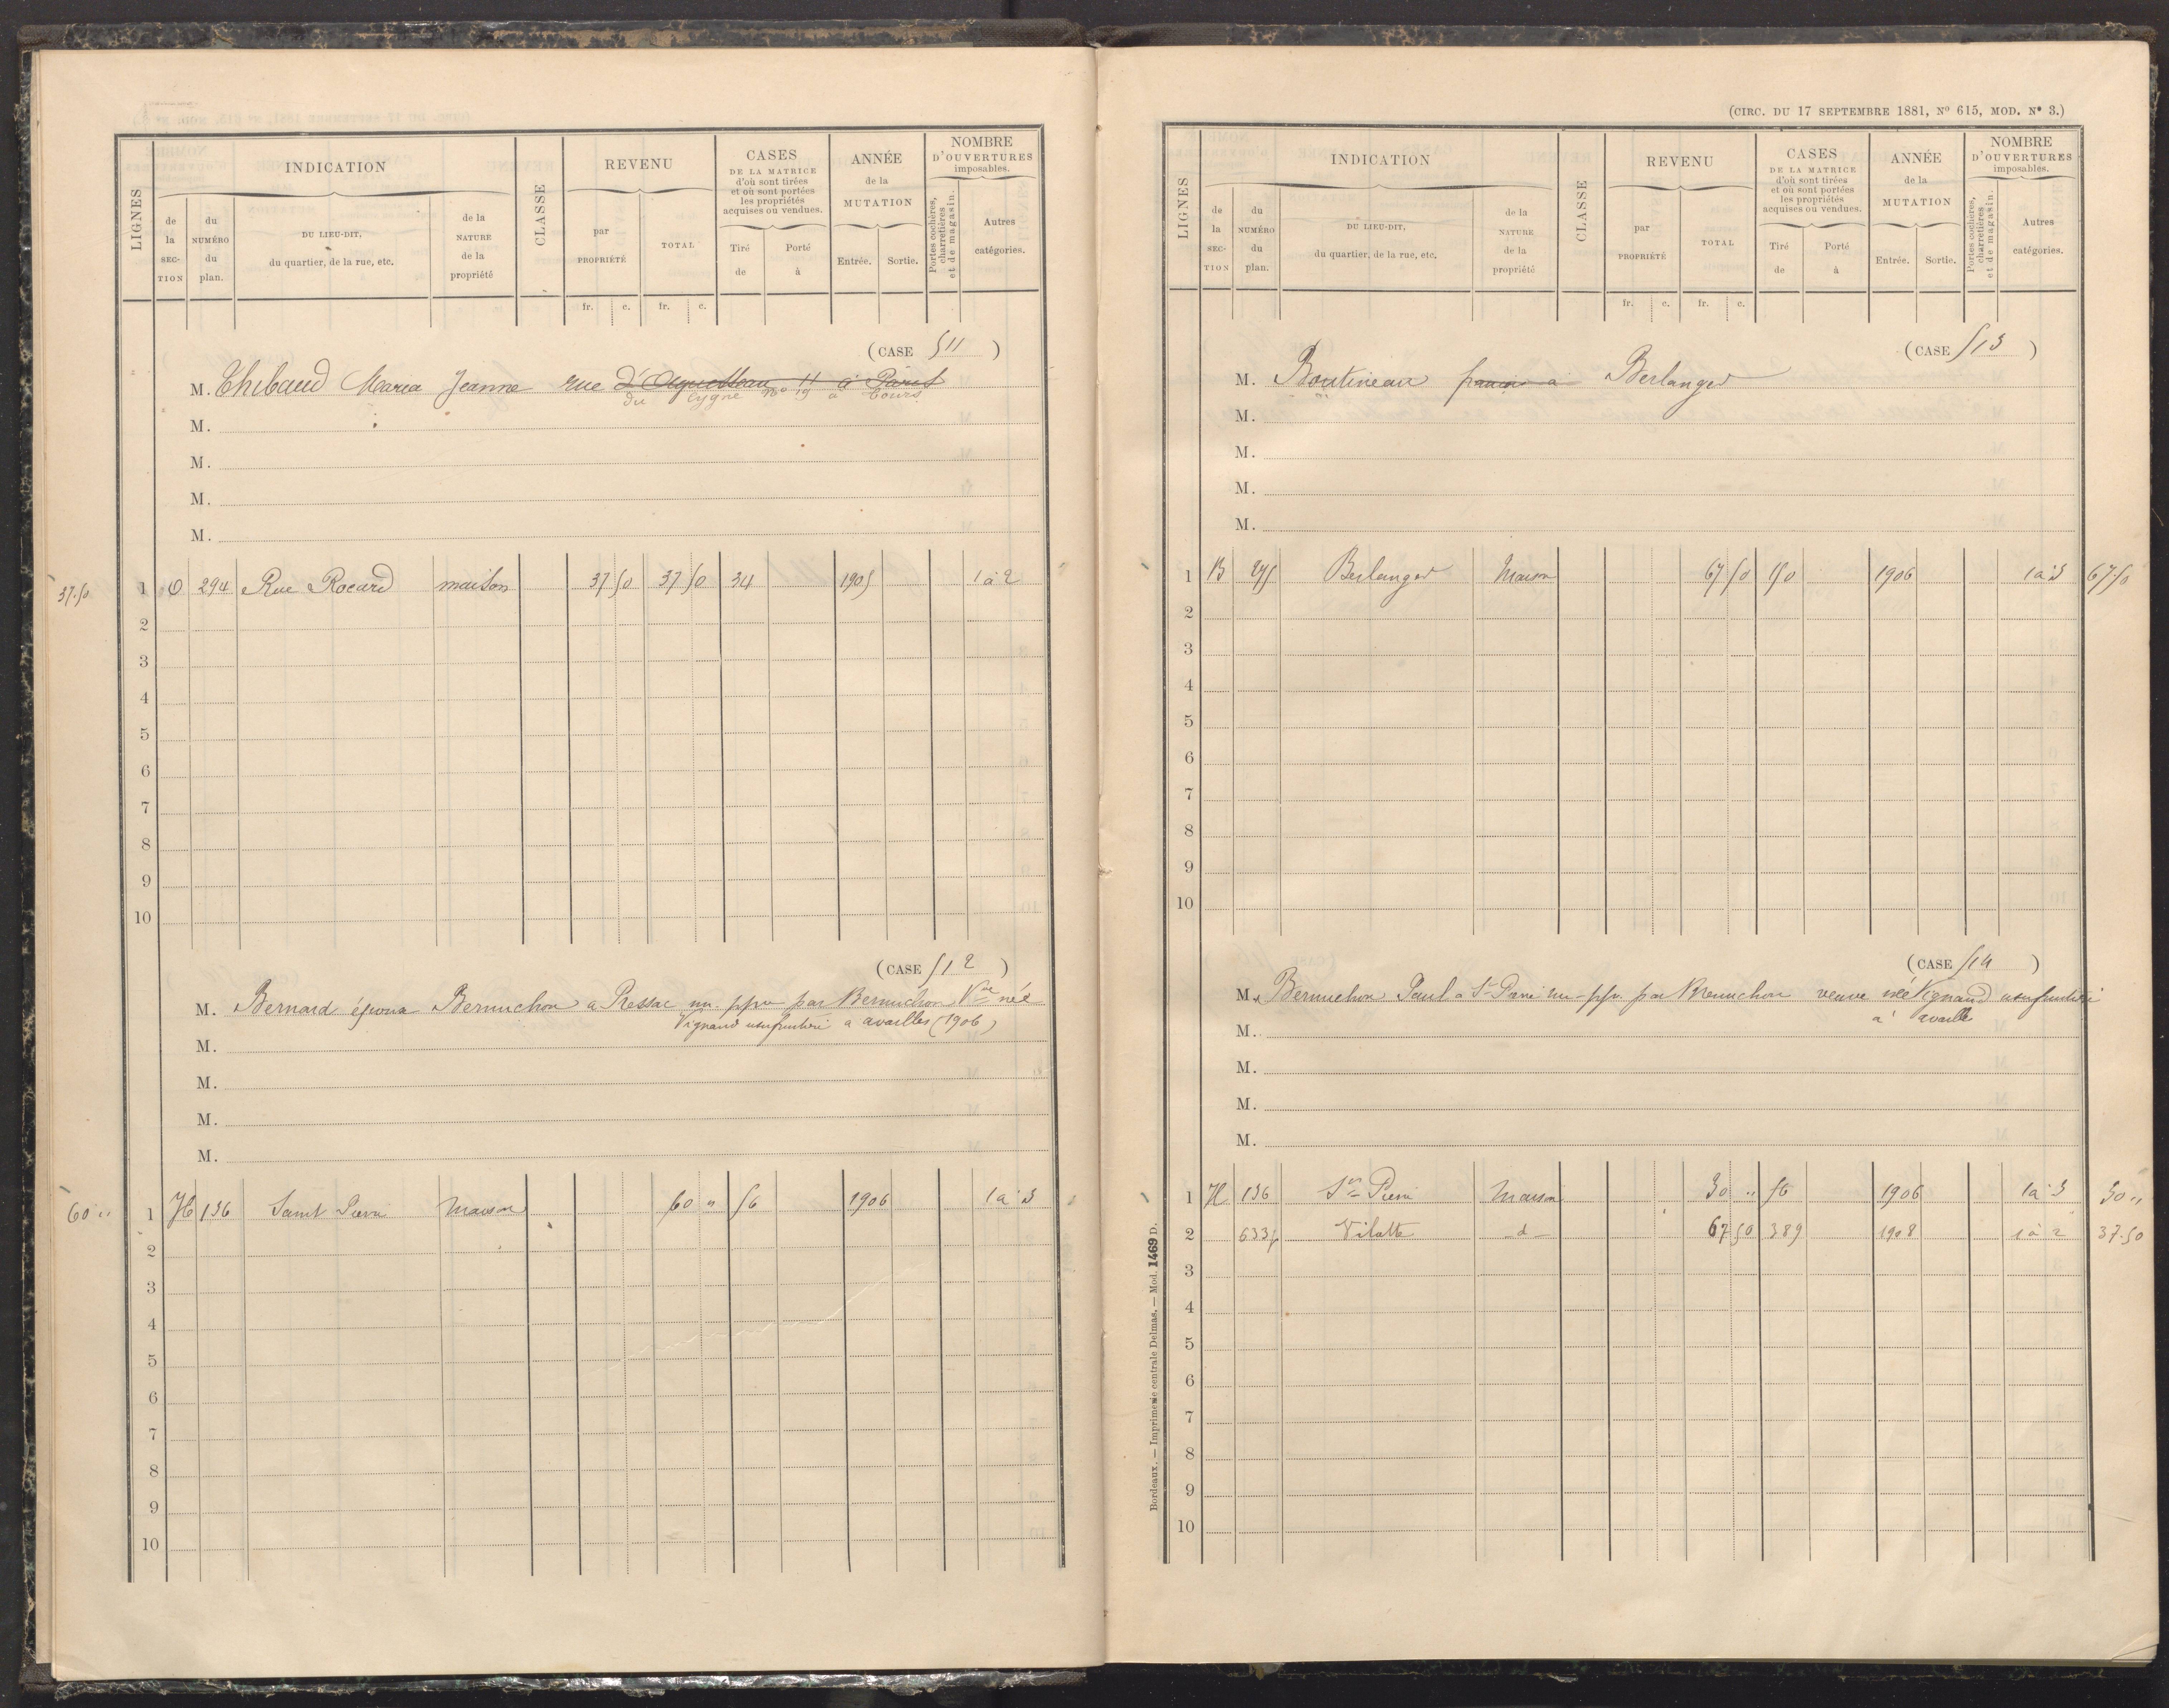 LIGNES
INDICATION
de la SECTION
du NUMÉRO du plan.
DU LIEU-DIT, du quartier, de la rue, etc.
de la NATURE de la propriété
CLASSE
REVENU
par PROPRIÉTÉ
TOTAL
fr. c. fr. c.
CASES DE LA MATRICE d'où sont tirées et où sont portées les propriétés acquises ou vendues.
Tiré de
Porté à
ANNÉE de la MUTATION
Entrée. Sortie.
NOMBRE D'OUVERTURES imposables.
Portes cochères, charretières et de magasin.
Autres catégories.
(CASE 511)
M. Thibaud Maria Jeanne rue d'Aguesseau 11 à Paris
du Cygne no 19 à Tours
M.
M.
M.
M.
37.50 1 O 294 Rue Rocard maison 37 50 37 50 34 1905 1 à 2
2
3
4
5
6
7
8
9
10
(CASE 512)
M. Bernard épouse Bernuchon a Pressac nu-ppre par Bernuchon Vve née
Vignaud usufruitière a availles (1906)
M.
M.
M.
M.
60 " 1 H 136 Saint Pierre Maison 60 " 56 1906 1 à 3
2
3
4
5
6
7
8
9
10
(CIRC. DU 17 SEPTEMBRE 1881, No 615, MOD. No 3.)
LIGNES
INDICATION
de la SECTION
du NUMÉRO du plan.
DU LIEU-DIT, du quartier, de la rue, etc.
de la NATURE de la propriété
CLASSE
REVENU
par PROPRIÉTÉ
TOTAL
fr. c. fr. c.
CASES DE LA MATRICE d'où sont tirées et où sont portées les propriétés acquises ou vendues.
Tiré de
Porté à
ANNÉE de la MUTATION
Entrée. Sortie.
NOMBRE D'OUVERTURES imposables.
Portes cochères, charretières et de magasin.
Autres catégories.
(CASE 513)
M. Boutineau à Berlanger
M.
M.
M.
M.
1 B Berlanger Maison 67 50 150 1906 1 à 3 67 50
2
3
4
5
6
7
8
9
10
(CASE 514)
M. Bernuchon Paul a St Pierre nu-ppr. par Bernuchon veuve née Vignaud usufruitière
a availle
M.
M.
M.
M.
1 H 136 St Pierre Maison 30 " 56 1906 1 à 3 30 "
2 633p Vilatte -d- 67 50 389 1908 1 à 2 37.50
3
4
5
6
7
8
9
10
Bordeaux. — Imprimerie centrale Delmas. — Mod. 1469 D.